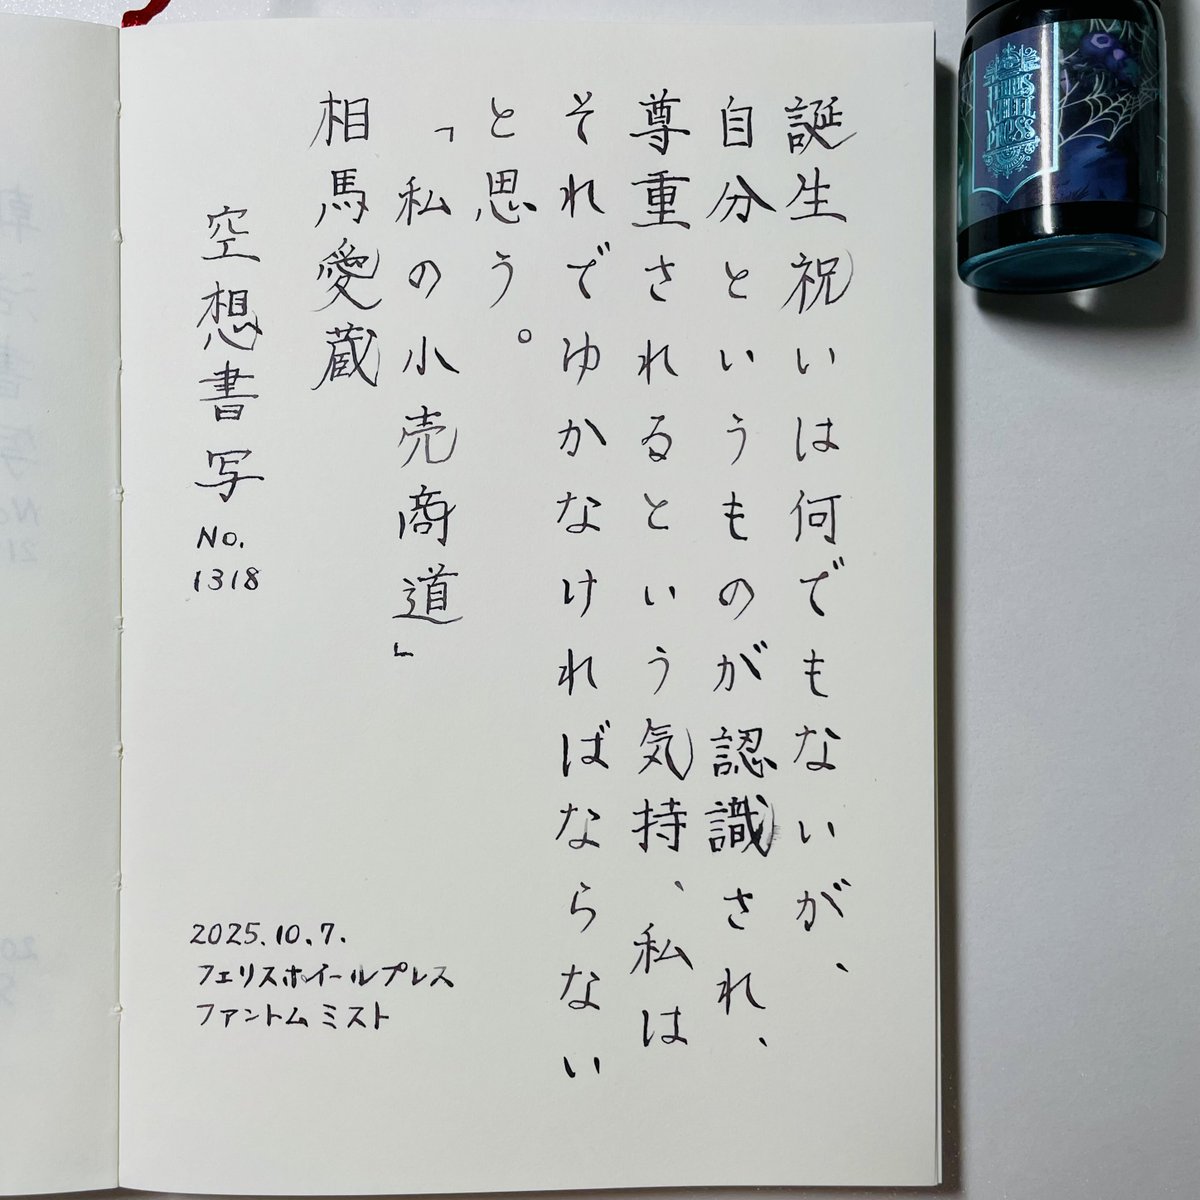 誕生祝いは何でもないが、
自分というものが認識され、
尊重されるという気持、私は
それでゆかなければならない
と思う。
「私の小売商道」
相馬愛蔵
空想書写
No.
1318
2025.10.7.
フェリスホイールプレス
ファントムミスト
FERRIS
WHEEL
PRESS